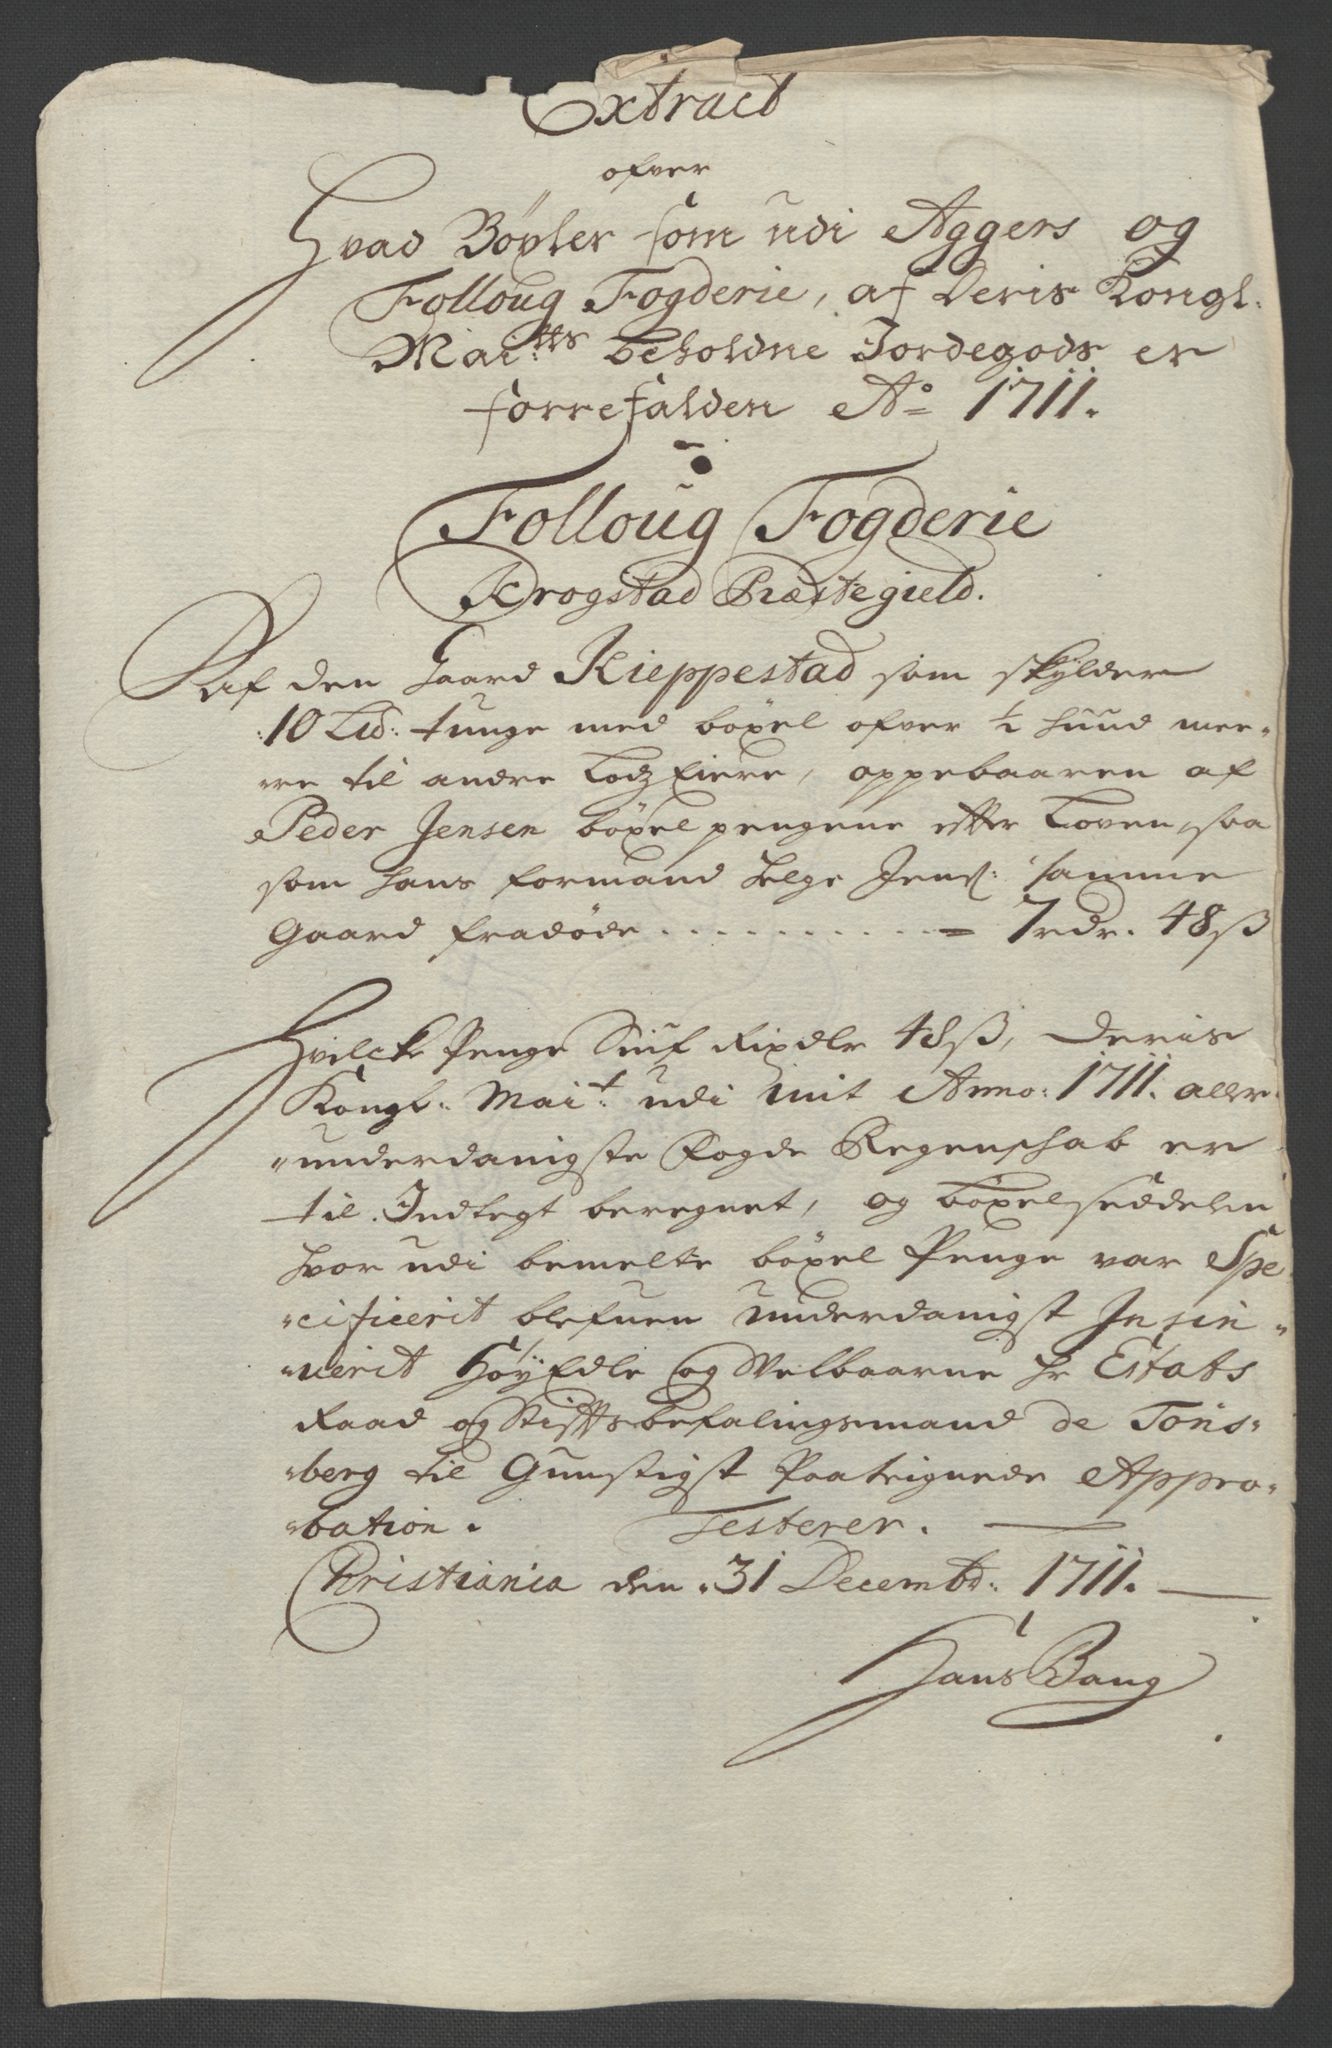 Extract
ofver
Hvad Böxler som udi Aggers og
Folloug Fogderie, af Deris Kongl.
Mai:tts beholdne Jordegods er
forrefalden A:o 1711.
Folloug Fogderie
Krogstad Præstegield.
Af den Gaard Kieppestad som skylder
10 Ld: tunge med böxel ofver ½ huud mee-
re til andre Lodz Eiere, oppebaaren af
Peder Jensen böxel pengene efter Loven, saa
som hans formand Helge Jens: samme
Gaard fradöde . . . . . . . . . . = 7 rdr. 48 ß
Hvilcke Penge Siuf Rixdlr 48 ß, Deris
Kongl. Mai:t udi mit Anno: 1711. aller-
underdanigste Fogde Regenschab er
til Indtegt beregnet, og böxelseddelen
hvor udi bemelte böxel Penge var Spe-
cificerit blefuen underdanigst Insin-
uerit HöyEdle og Welbaarne Hr Etats
Raad og Stiftsbefalingsmand de Tons-
berg til Gunstigst Paateignede Appro-
bation. Testerer.
Christiania den 31 Decembr: 1711.
Hans Bang